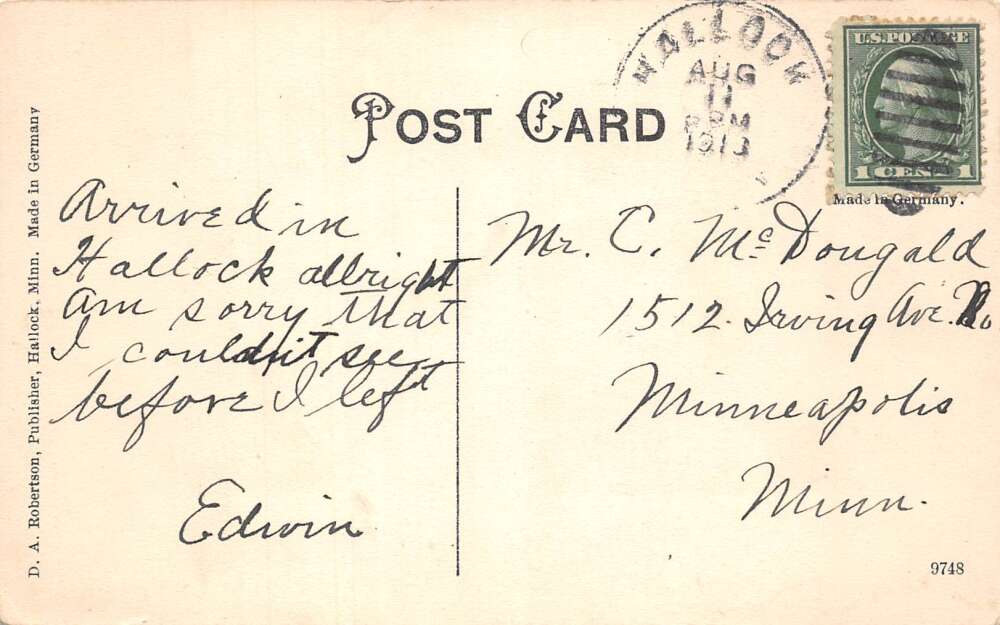 POST CARD
HALLOCK
AUG
11
8 PM
1913
U.S. POSTAGE
1 CENT 1
Made in Germany.
Arrived in
Hallock allright
am sorry that
I couldn't see
before I left
Edwin
Mr. C. McDougald
1512. Irving Ave. No
Minneapolis
Minn.
D. A. Robertson, Publisher, Hallock, Minn. Made in Germany
9748